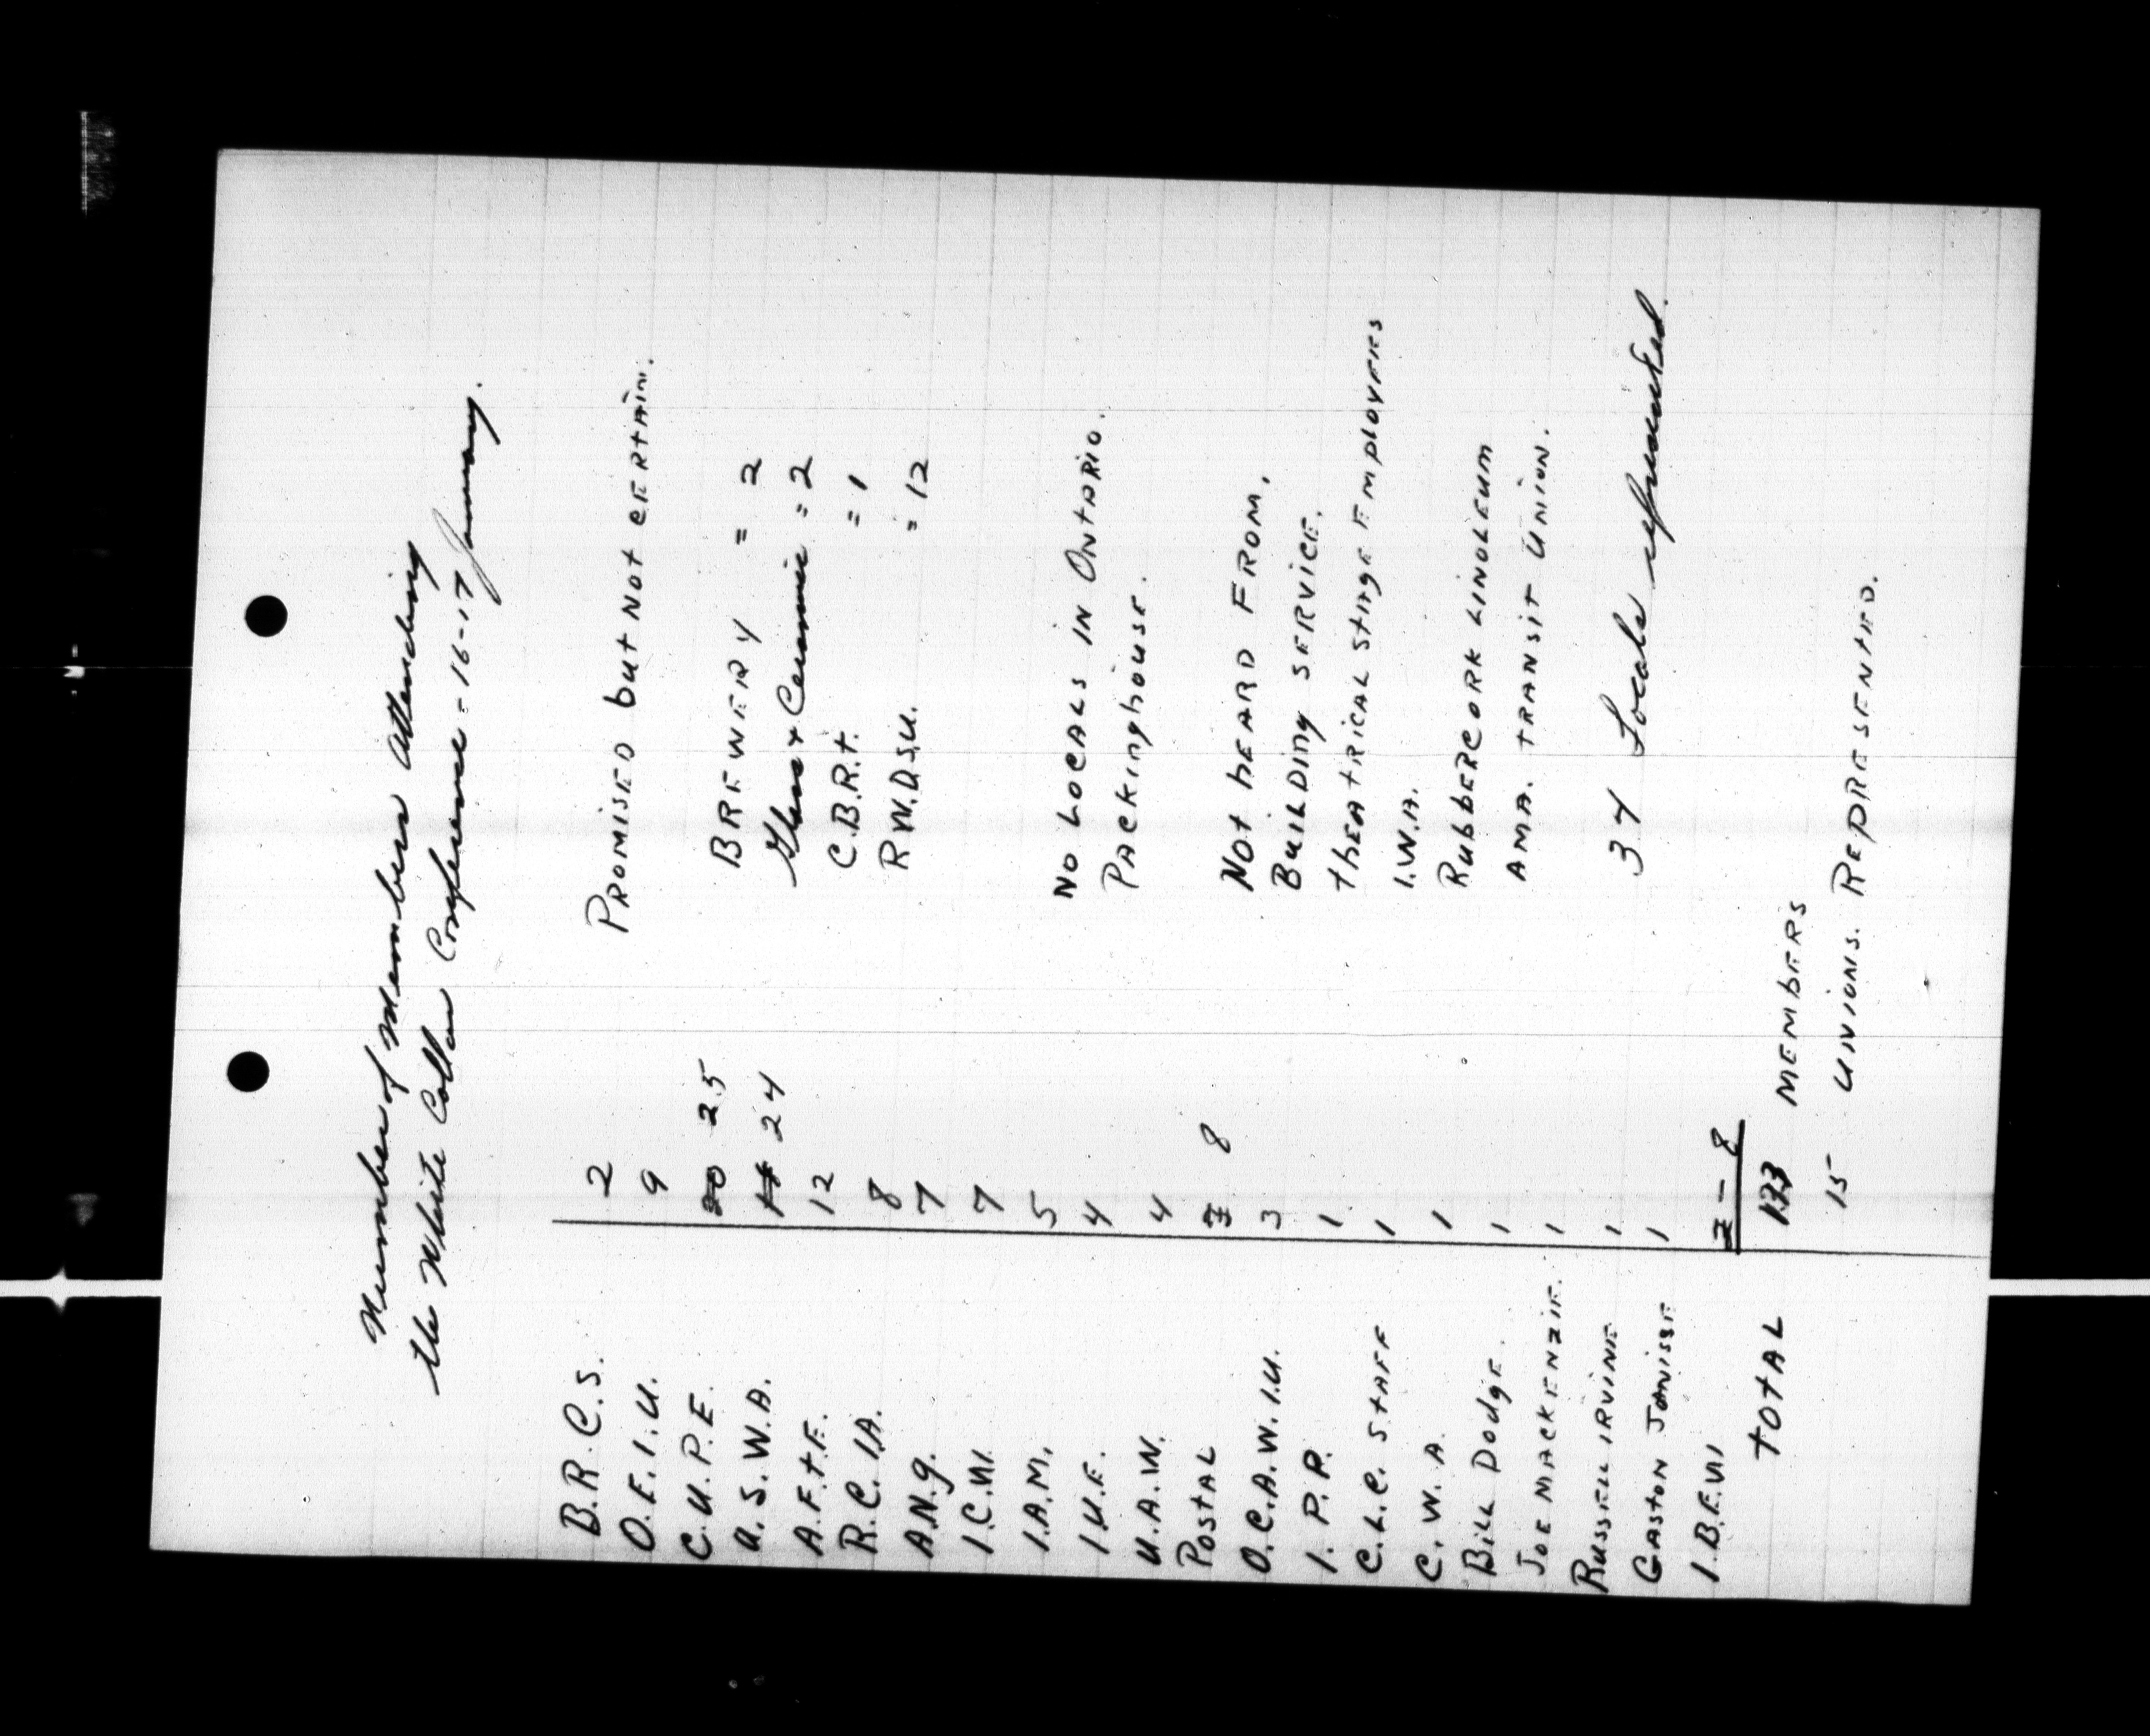 Number of Members Attending
the White Collar Conference - 16-17 January.
B.R.C.S. 2
O.E.I.U. 9
C.U.P.E. 20 25
U.S.W.A. 24
A.F.t.E. 12
R.C.IA. 8
A.N.g. 7
I.C.W. 7
I.A.M. 5
I.U.E. 4
U.A.W. 4
Postal 7 8
O.C.A.W.I.U. 3
I.P.P. 1
C.L.C. Staff 1
C.W.A. 1
Bill Dodge. 1
Joe MacKenzie. 1
Russell Irvine 1
Gaston Janisse 1
I.B.E.W. 8
Total 133 Members
15 Unions. Represented.
Promised but not certain.
Brewery = 2
Glass & Ceramic = 2
C.B.R.t. = 1
R.W.D.S.U. = 12
No Locals in Ontario.
Packinghouse.
Not heard from.
Building Service.
Theatrical Stage Employees
I.W.A.
Rubber Cork Linoleum
Ama. Transit Union.
34 Locals represented.